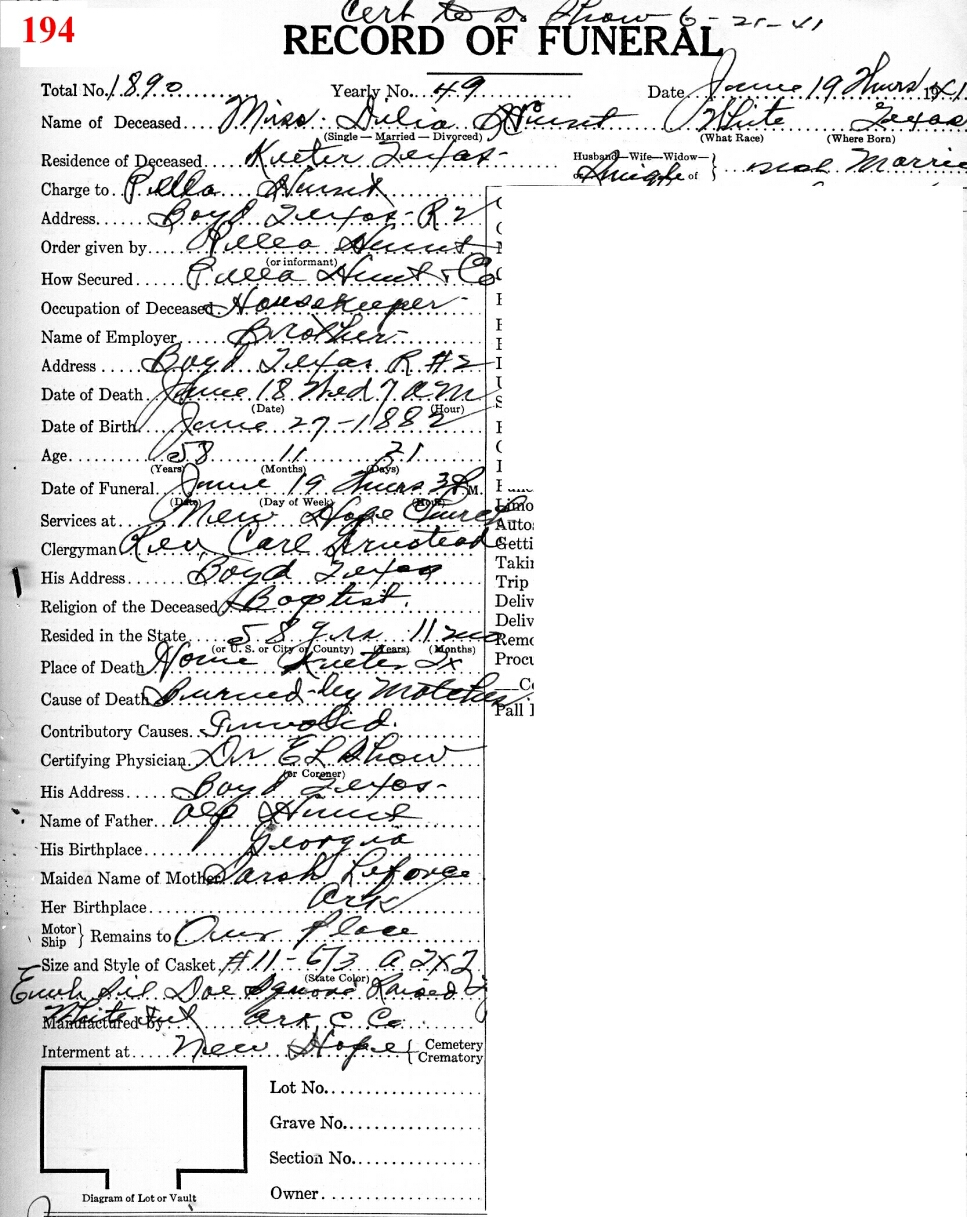 194
Cert to Dr Show 6-21-41
RECORD OF FUNERAL
Total No. 1890 Yearly No. 49 Date June 19 Thurs 1941
Name of Deceased Miss Hunt White Texas
(Single — Married — Divorced) (What Race) (Where Born)
Residence of Deceased Keeter Texas Husband—Wife—Widow— or Single of } not Marrie
Charge to Hunt
Address Boyd Texas - R 2
Order given by Hunt
(or informant)
How Secured Hunt & Co
Occupation of Deceased Housekeeper
Name of Employer Brother
Address Boyd Texas R #2
Date of Death June 18 Wed 7 am
(Date) (Hour)
Date of Birth June 27-1882
Age 58 11 21
(Years) (Months) (Days)
Date of Funeral June 19 Thurs 3 P.M.
(Date) (Day of Week) (Hour)
Services at New Hope Church
Clergyman Rev Carl
His Address Boyd Texas
Religion of the Deceased Baptist
Resided in the State 58 yrs 11 mo
(or U. S. or City or County) (Years) (Months)
Place of Death Home Keeter Tx
Cause of Death Burned by Matches
Contributory Causes Invalid
Certifying Physician Dr E L Show
(or Coroner)
His Address Boyd Texas
Name of Father Alf Hunt
His Birthplace Georgia
Maiden Name of Mother Sarah Leforce
Her Birthplace Ark
Motor Ship } Remains to Our Place
Size and Style of Casket #11-6/3 a 2x2
(State Color)
Emb Sil Doe Square Raised
Manufactured by Ark C Co
Interment at New Hope { Cemetery Crematory
Lot No.
Grave No.
Section No.
Owner
Diagram of Lot or Vault
Limo
Auto
Getti
Takin
Trip
Deliv
Deliv
Remo
Procu
Pall